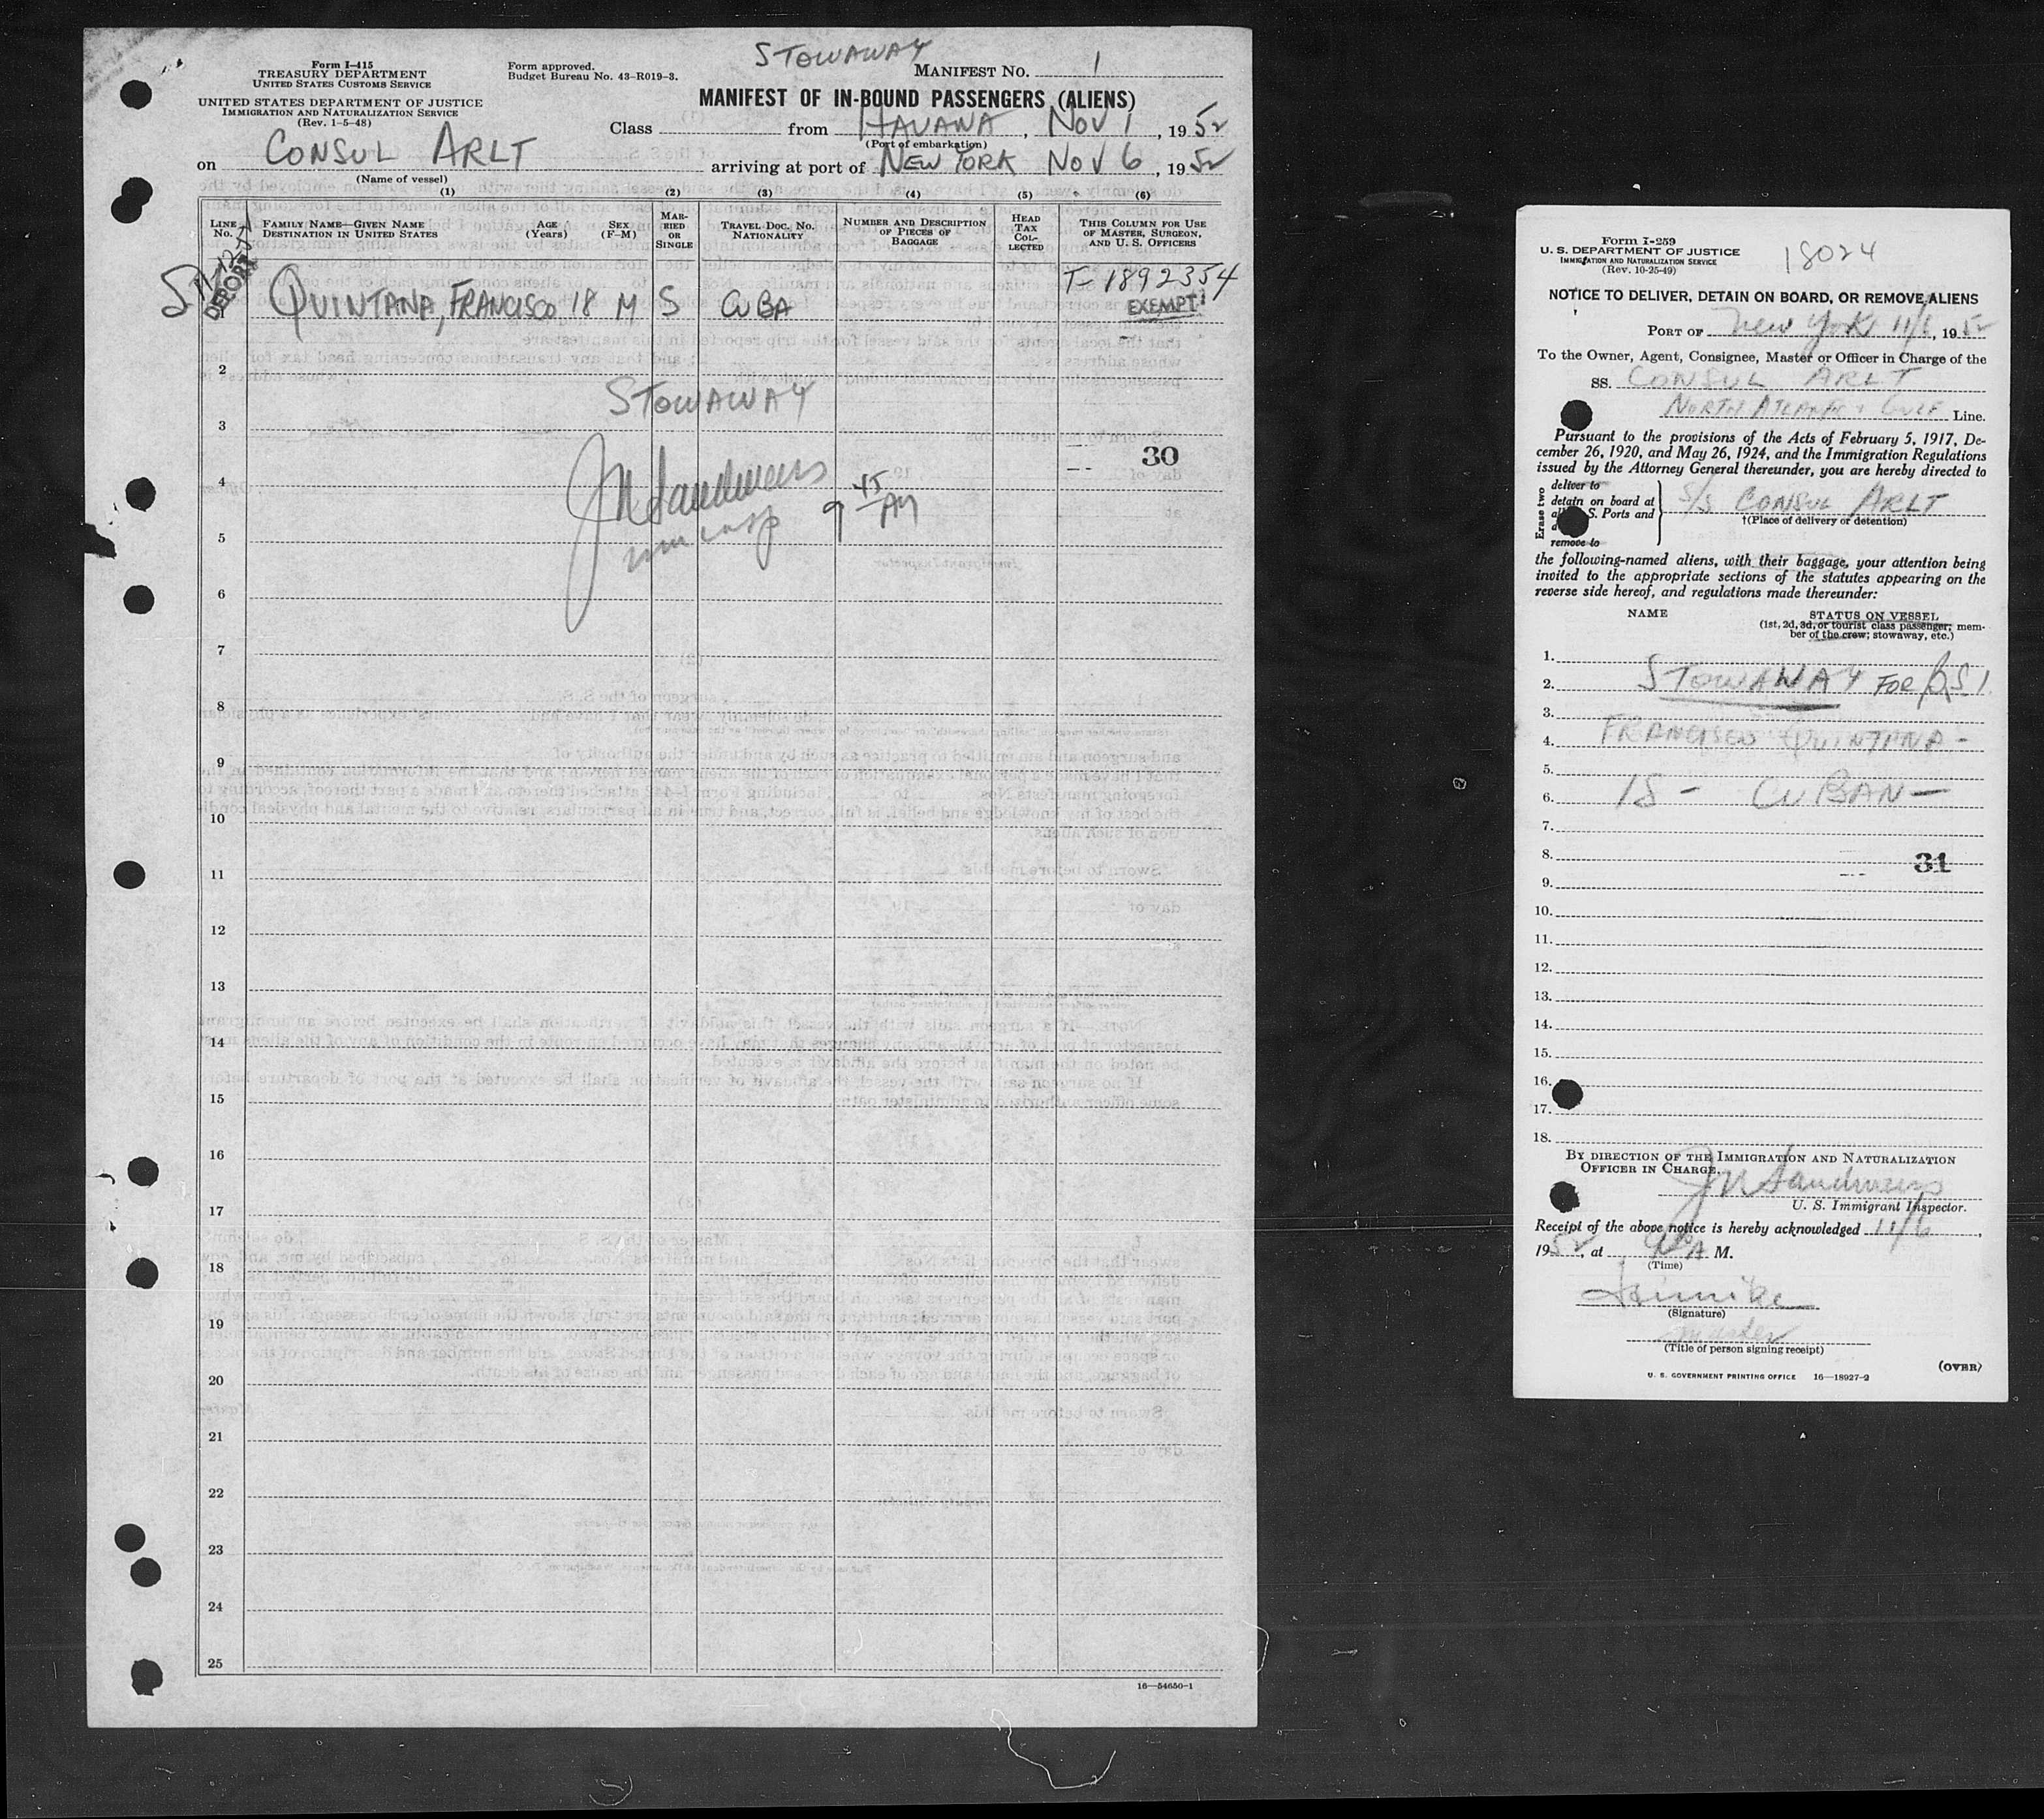 STOWAWAY
Form I-415
TREASURY DEPARTMENT
UNITED STATES CUSTOMS SERVICE
UNITED STATES DEPARTMENT OF JUSTICE
IMMIGRATION AND NATURALIZATION SERVICE
(Rev. 1-5-48)
Form approved.
Budget Bureau No. 43-R019-3.
MANIFEST NO. 1
MANIFEST OF IN-BOUND PASSENGERS (ALIENS)
Class from HAVANA, NOV 1, 1952
(Port of embarkation)
on CONSUL ARLT arriving at port of NEW YORK NOV 6, 1952
(Name of vessel)
(1) (2) (3) (4) (5) (6)
LINE No.
FAMILY NAME—GIVEN NAME
DESTINATION IN UNITED STATES
AGE (Years)
SEX (F—M)
MARRIED OR SINGLE
TRAVEL DOC. NO. NATIONALITY
NUMBER AND DESCRIPTION OF PIECES OF BAGGAGE
HEAD TAX COLLECTED
THIS COLUMN FOR USE OF MASTER, SURGEON, AND U. S. OFFICERS
DEPORT
QUINTANA, FRANCISCO 18 M S CUBA
T-1892354
EXEMPT
2
STOWAWAY
3
30
4
J M Sandmeers
9 45 AM
5
6
7
8
9
10
11
12
13
14
15
16
17
18
19
20
21
22
23
24
25
16—54650-1
Form I-259
U. S. DEPARTMENT OF JUSTICE
IMMIGRATION AND NATURALIZATION SERVICE
(Rev. 10-25-49)
18024
NOTICE TO DELIVER, DETAIN ON BOARD, OR REMOVE ALIENS
PORT OF New York 11/6, 1952
To the Owner, Agent, Consignee, Master or Officer in Charge of the
SS. CONSUL ARLT
NORTH ATLANTIC & GULF Line.
Pursuant to the provisions of the Acts of February 5, 1917, De-
cember 26, 1920, and May 26, 1924, and the Immigration Regulations
issued by the Attorney General thereunder, you are hereby directed to
Erase two
deliver to
detain on board at
S. Ports and
remove to
S/S CONSUL ARLT
†(Place of delivery or detention)
the following-named aliens, with their baggage, your attention being
invited to the appropriate sections of the statutes appearing on the
reverse side hereof, and regulations made thereunder:
NAME STATUS ON VESSEL
(1st, 2d, 3d, or tourist class passenger; mem-
ber of the crew; stowaway, etc.)
1.
2. STOWAWAY FOR BSI
3.
4. FRANCISCO QUINTANA -
5.
6. 18 - CUBAN -
7.
8.
31
9.
10.
11.
12.
13.
14.
15.
16.
17.
18.
BY DIRECTION OF THE IMMIGRATION AND NATURALIZATION
OFFICER IN CHARGE.
J M Sandmeers
U. S. Immigrant Inspector.
Receipt of the above notice is hereby acknowledged 11/6,
1952, at A M.
(Time)
(Signature)
master
(Title of person signing receipt)
(OVER)
U. S. GOVERNMENT PRINTING OFFICE 16—18927-2